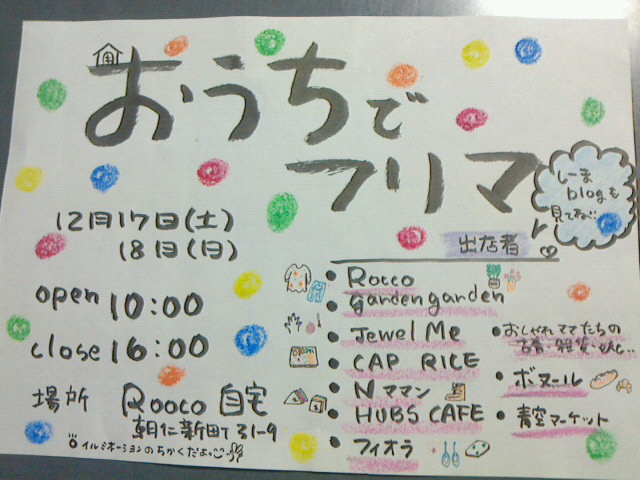 おうちで
フリマ
しーま
blogも
見てね♪
12月17日(土)
18日(日)
出店者
open 10:00
close 16:00
場所 Rooco 自宅
朝仁新町31-9
イルミネーションのちかくだよっ
Rocco
garden garden
Jewel Me
CAP RICE
Nママン
HUBS CAFE
フィオラ
おしゃれママたちの
古着・雑貨・etc..
ボヌール
青空マーケット